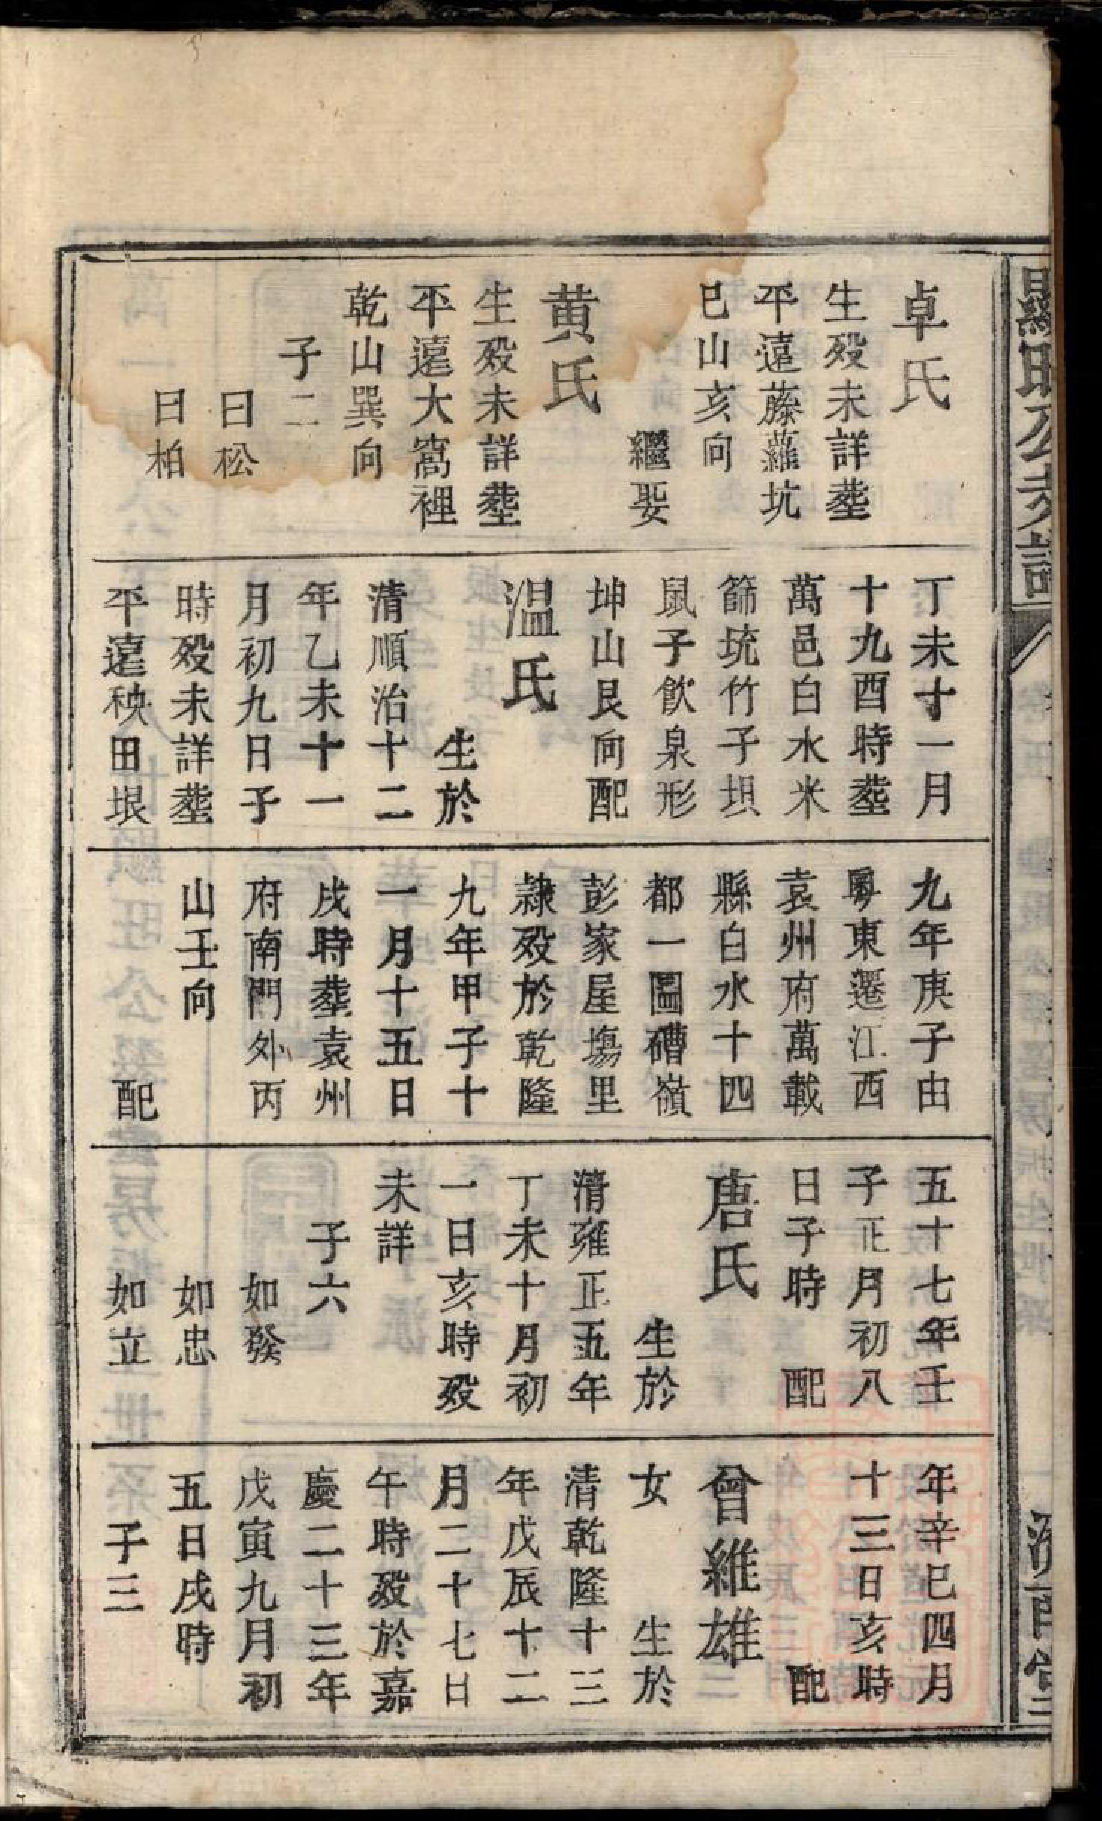 卓氏
生殁未詳塟
平遠藤蘿坑
巳山亥向
繼娶
黄氏
生殁未詳塟
平遠大窩裡
乾山巽向
子二
曰松
曰柏
丁未十一月
十九酉時塟
萬邑白水米
篩坑竹子坦
鼠子飲泉形
坤山艮向配
温氏
生於
清順治十二
年乙未十一
月初九日子
時殁未詳塟
平遠秧田垠
九年庚子由
粤東遷江西
袁州府萬載
縣白水十四
都一圖礌嶺
彭家屋塲里
隸殁於乾隆
九年甲子十
一月十五日
戌時塟袁州
府南門外丙
山壬向
配
五十七年壬
子正月初八
日子時 配
唐氏
生於
清雍正五年
丁未十月初
一日亥時殁
未詳
子六
如發
如忠
如立
年辛巳四月
十三日亥時
配
曾維雄
女 生於
清乾隆十三
年戊辰十二
月二十七日
午時殁於嘉
慶二十三年
戊寅九月初
五日戌時
子三